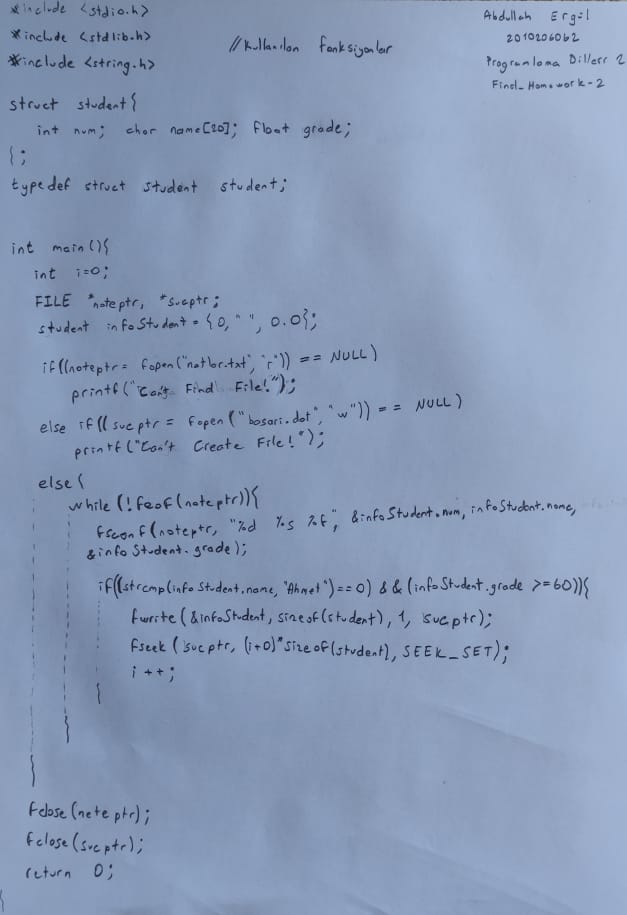 #include <stdio.h>
#include <stdlib.h>
#include <string.h>
//Kullanılan fonksiyonlar
Abdullah Ergül
2010206062
Programlama Dilleri 2
Final_Homework-2
struct student{
int num; char name[20]; float grade;
};
typedef struct student student;
int main(){
int i=0;
FILE *noteptr, *sucptr;
student infoStudent = {0, " ", 0.0};
if((noteptr = fopen("notlar.txt", "r")) == NULL)
printf("Can't Find File!");
else if(( sucptr = fopen ("basari.dat", "w")) == NULL)
printf("Can't Create File!");
else{
while (!feof(noteptr)){
fscanf(noteptr, "%d %s %f", &infoStudent.num, infoStudent.name,
&infoStudent.grade);
if((strcmp(infoStudent.name, "Ahmet")==0) && (infoStudent.grade >=60)){
fwrite (&infoStudent, sizeof(student), 1, sucptr);
fseek (sucptr, (i+0)*sizeof(student), SEEK_SET);
i++;
}
}
}
fclose(noteptr);
fclose(sucptr);
return 0;
}